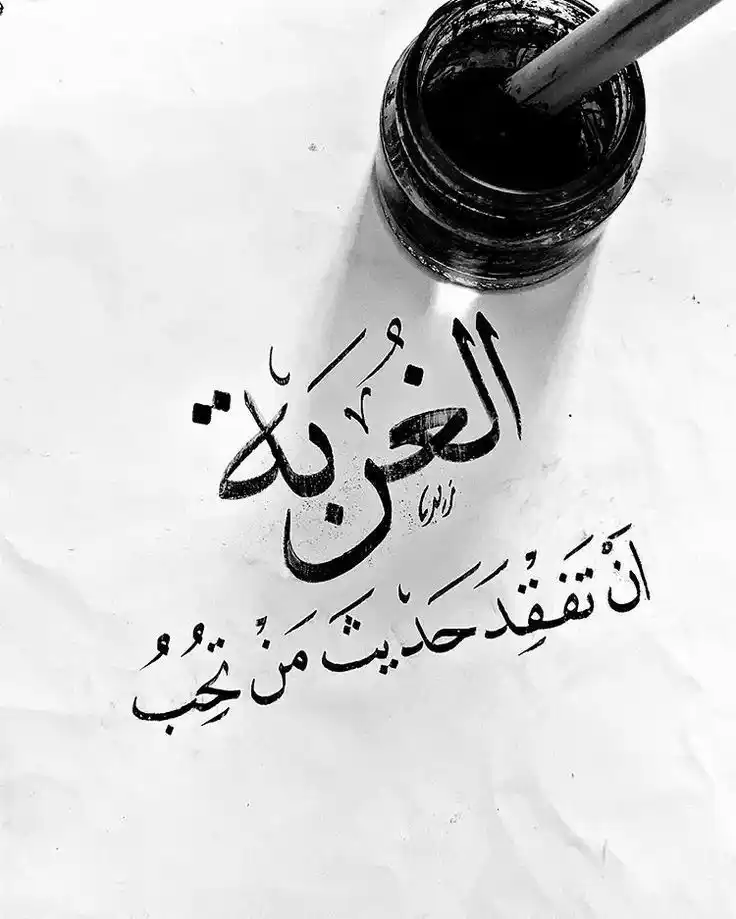 الغُربَة
انْ تَفْقِدَ حَدْيثَ مَنْ تُحِبُ